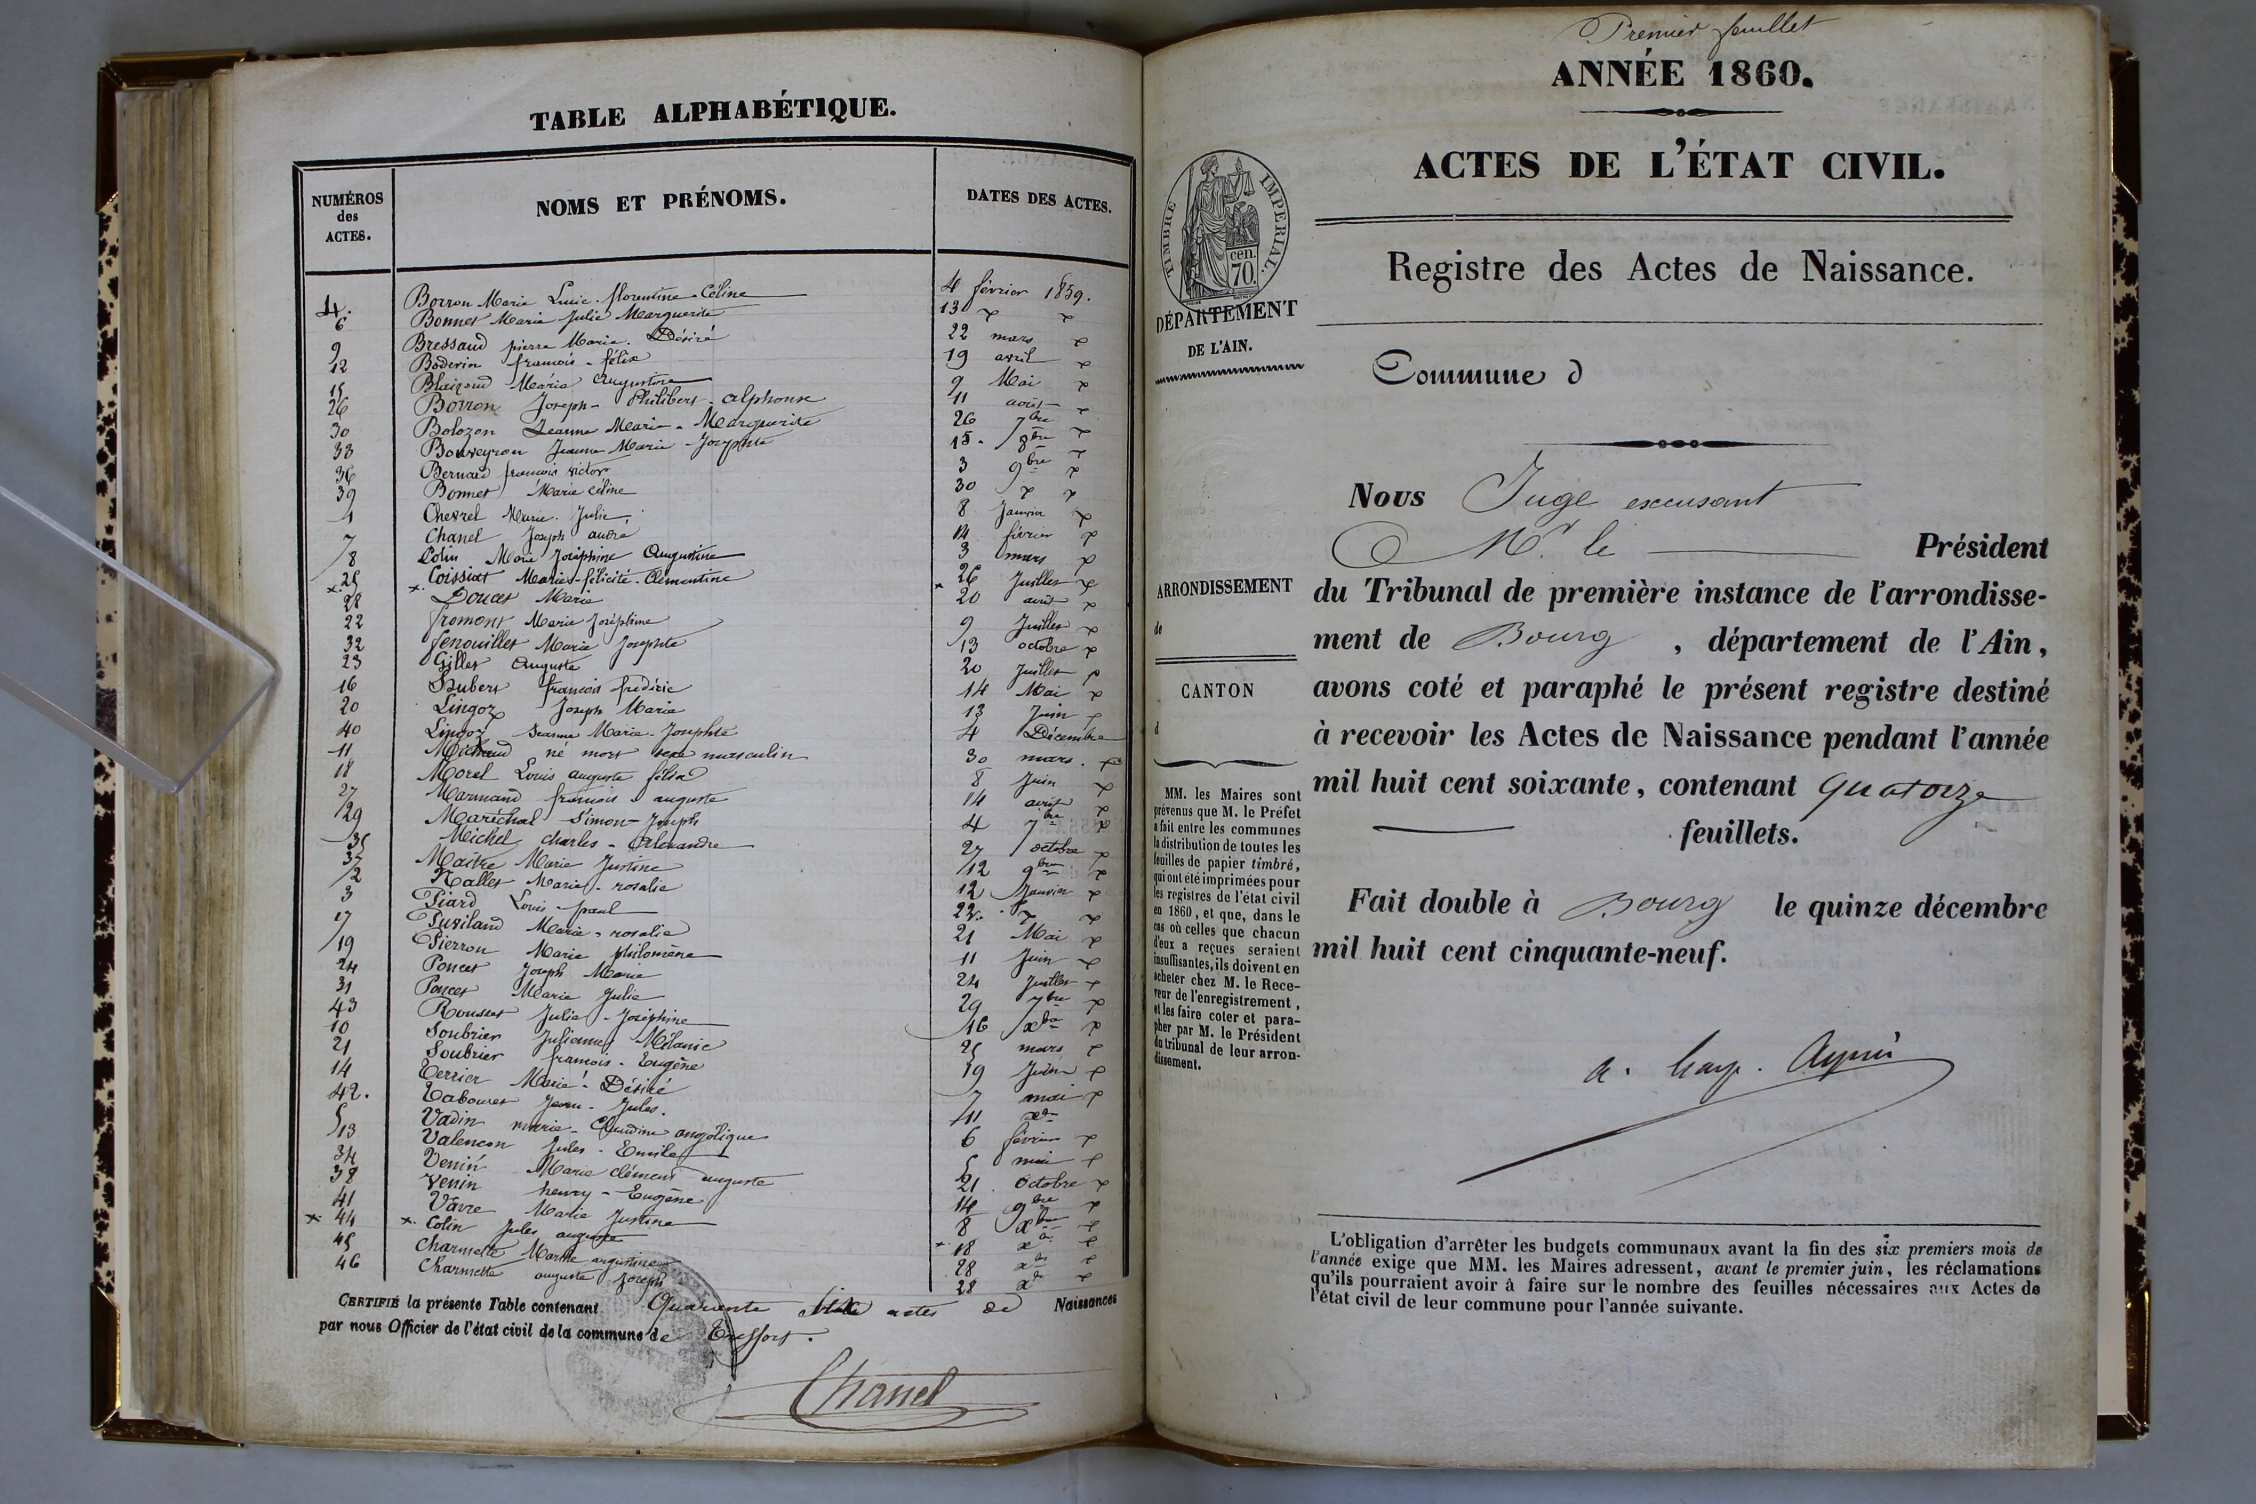 TABLE ALPHABÉTIQUE.
NUMÉROS des ACTES. NOMS ET PRÉNOMS. DATES DES ACTES.
4. Borron Marie Lucie florentine Céline 4 février 1859.
6 Bonnet Marie Julie Marguerite 13 " "
9 Bressaud pierre Marie Désiré 22 mars "
12 Boderin françois félix 19 avril "
15 Blaizond Maria Augustine 9 Mai "
26 Borron Joseph Philibert alphonse 11 août "
30 Bolozon Jeanne Marie Marguerite 26 7bre "
33 Bouveyron Jeanne Marie Josephte 15 8bre "
36 Bernard françois victor 3 9bre "
39 Bonnet Marie céline 30 " "
1 Chevrel Marie Julie 8 Janvier "
7 Chanel Joseph andré 14 février "
8 Colin Marie Joséphine Augustine 3 mars "
25 Coissiat Marie félicité Clémentine 26 Juillet "
x. 28 x. Doucet Marie x 20 août "
22 fromont Marie Joséphine 9 Juillet "
32 fenouillet Marie Josephte 13 octobre "
23 Gillet Auguste 20 Juillet "
16 Hubert françois frédéric 14 Mai "
20 Lingoz Joseph Marie 13 Juin "
40 Lingoz Jeanne Marie Josephte 4 Décembre
11 Michaud né mort sexe masculin 30 mars "
18 Morel Louis auguste félix 8 Juin "
27 Marmand françois auguste 14 août "
29 Maréchal Simon Joseph 4 7bre "
35 Michel charles Alexandre 27 octobre "
37 Maitre Marie Justine 12 9bre "
2 Nallet Marie rosalie 12 Janvier "
3 Piard Louis paul 22 " "
17 Puviland Marie rosalie 21 Mai "
19 Pierron Marie philomène 11 Juin "
24 Poncet Joseph Marie 24 Juillet "
31 Poncet Marie Julie 29 7bre "
43 Rousset Julie Joséphine 16 xbre "
10 Soubrier Julienne Mélanie 25 mars "
21 Soubrier françois Eugène 19 Juin "
14 Terrier Marie Désiré 7 mai "
42. Tabouret Jean Jules. 11 xbre
5 Vadin marie Claudine angélique 6 février "
13 Valençon Jules Emile 5 mai "
34 Venin Marie clément auguste 21 octobre "
38 Venin henry Eugène 14 9bre "
41 Vavre Marie Justine 8 xbre "
x 44 x. Colin Jules auguste x 18 xbre "
45 Charmette Marie augustine 28 xbre "
46 Charmette auguste Joseph 28 xbre "
CERTIFIÉ la présente Table contenant Quarante six actes de Naissances
par nous Officier de l'état civil de la commune de Treffort.
Chanel
Premier feuillet
ANNÉE 1860.
ACTES DE L'ÉTAT CIVIL.
TIMBRE IMPERIAL.
cen.
70.
Registre des Actes de Naissance.
DÉPARTEMENT
DE L'AIN.
Commune d
Nous Juge excusant
Mr. le Président
du Tribunal de première instance de l'arrondisse-
ment de Bourg, département de l'Ain,
avons coté et paraphé le présent registre destiné
à recevoir les Actes de Naissance pendant l'année
mil huit cent soixante, contenant quatorze
feuillets.
Fait double à Bourg le quinze décembre
mil huit cent cinquante-neuf.
ARRONDISSEMENT
de
CANTON
d
MM. les Maires sont
prévenus que M. le Préfet
a fait entre les communes
la distribution de toutes les
feuilles de papier timbré,
qui ont été imprimées pour
les registres de l'état civil
en 1860, et que, dans le
cas où celles que chacun
d'eux a reçues seraient
insuffisantes, ils doivent en
acheter chez M. le Rece-
veur de l'enregistrement,
et les faire coter et para-
pher par M. le Président
du tribunal de leur arron-
dissement.
L'obligation d'arrêter les budgets communaux avant la fin des six premiers mois de
l'année exige que MM. les Maires adressent, avant le premier juin, les réclamations
qu'ils pourraient avoir à faire sur le nombre des feuilles nécessaires aux Actes de
l'état civil de leur commune pour l'année suivante.